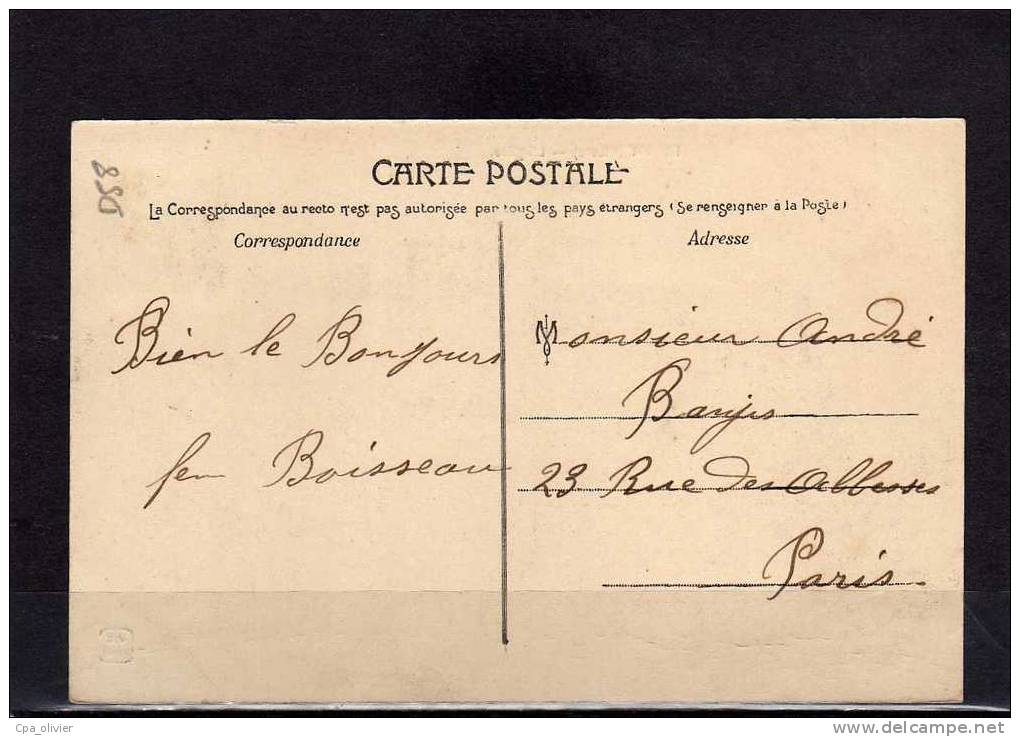 D58
CARTE POSTALE
La Correspondance au recto n'est pas autorisée par tous les pays étrangers (Se renseigner à la Poste)
Correspondance
Bien le Bonjours
Boisseau
Adresse
Monsieur André
23 Rue des Abbesses
Paris
Cpa_olivier
www.delcampe.net